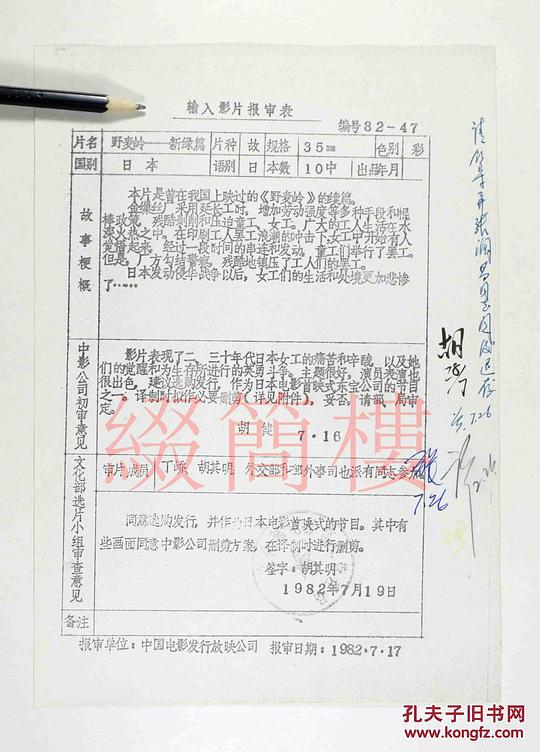 输入影片报审表
编号82-47
片名 野麦岭——新绿篇 片种 故 规格 35mm 色别 彩
国别 日本 语别 日 本数 10中 出品年月
故事梗概
本片是曾在我国上映过的《野麦岭》的续篇。
金缘纱厂采用延长工时,增加劳动强度等多种手段和棍
棒政策,残酷剥削和压迫童工、女工。广大的工人生活在水
深火热之中。在印刷工人罢工浪潮的冲击下,女工中开始有人
觉悟起来,经过一段时间的串连和发动,童工们举行了罢工。
但是,厂方勾结警察,残酷地镇压了工人们的罢工。
日本发动侵华战争以后,女工们的生活和处境更加悲惨
了……
中影公司初审意见
影片表现了二、三十年代日本女工的痛苦和辛酸,以及她
们
胡健
7·16
文化部选片小组审查意见
审片成员 丁峤、胡其明,外交部和部外事司也派有同志参加
同意选购发行,并作为日本电影首映式的节目。其中有
些画面同意中影公司删剪方案,在译制时进行删剪。
签字:胡其明
1982年7月19日
备注
报审单位:中国电影发行放映公司 报审日期:1982·7·17
7.26
7.26
缀简楼
孔夫子旧书网
www.kongfz.com